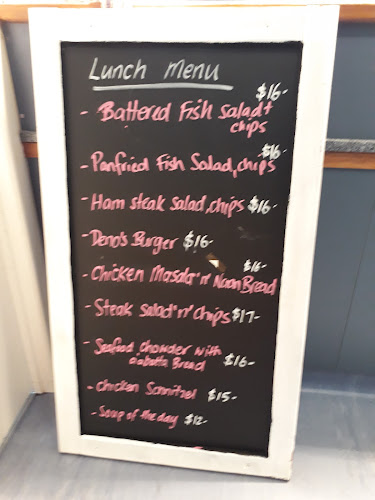 Lunch Menu
$16-
- Battered Fish Salad +
chips
$16-
- Panfried Fish Salad, chips
- Ham steak salad, chips $16-
- Deno's Burger $16-
$16-
- Chicken Masala 'n' Naan Bread
- Steak salad 'n' chips $17-
- Seafood Chowder with
ciabatta Bread $16-
- Chicken Schnitzel $15-
- Soup of the day $12-